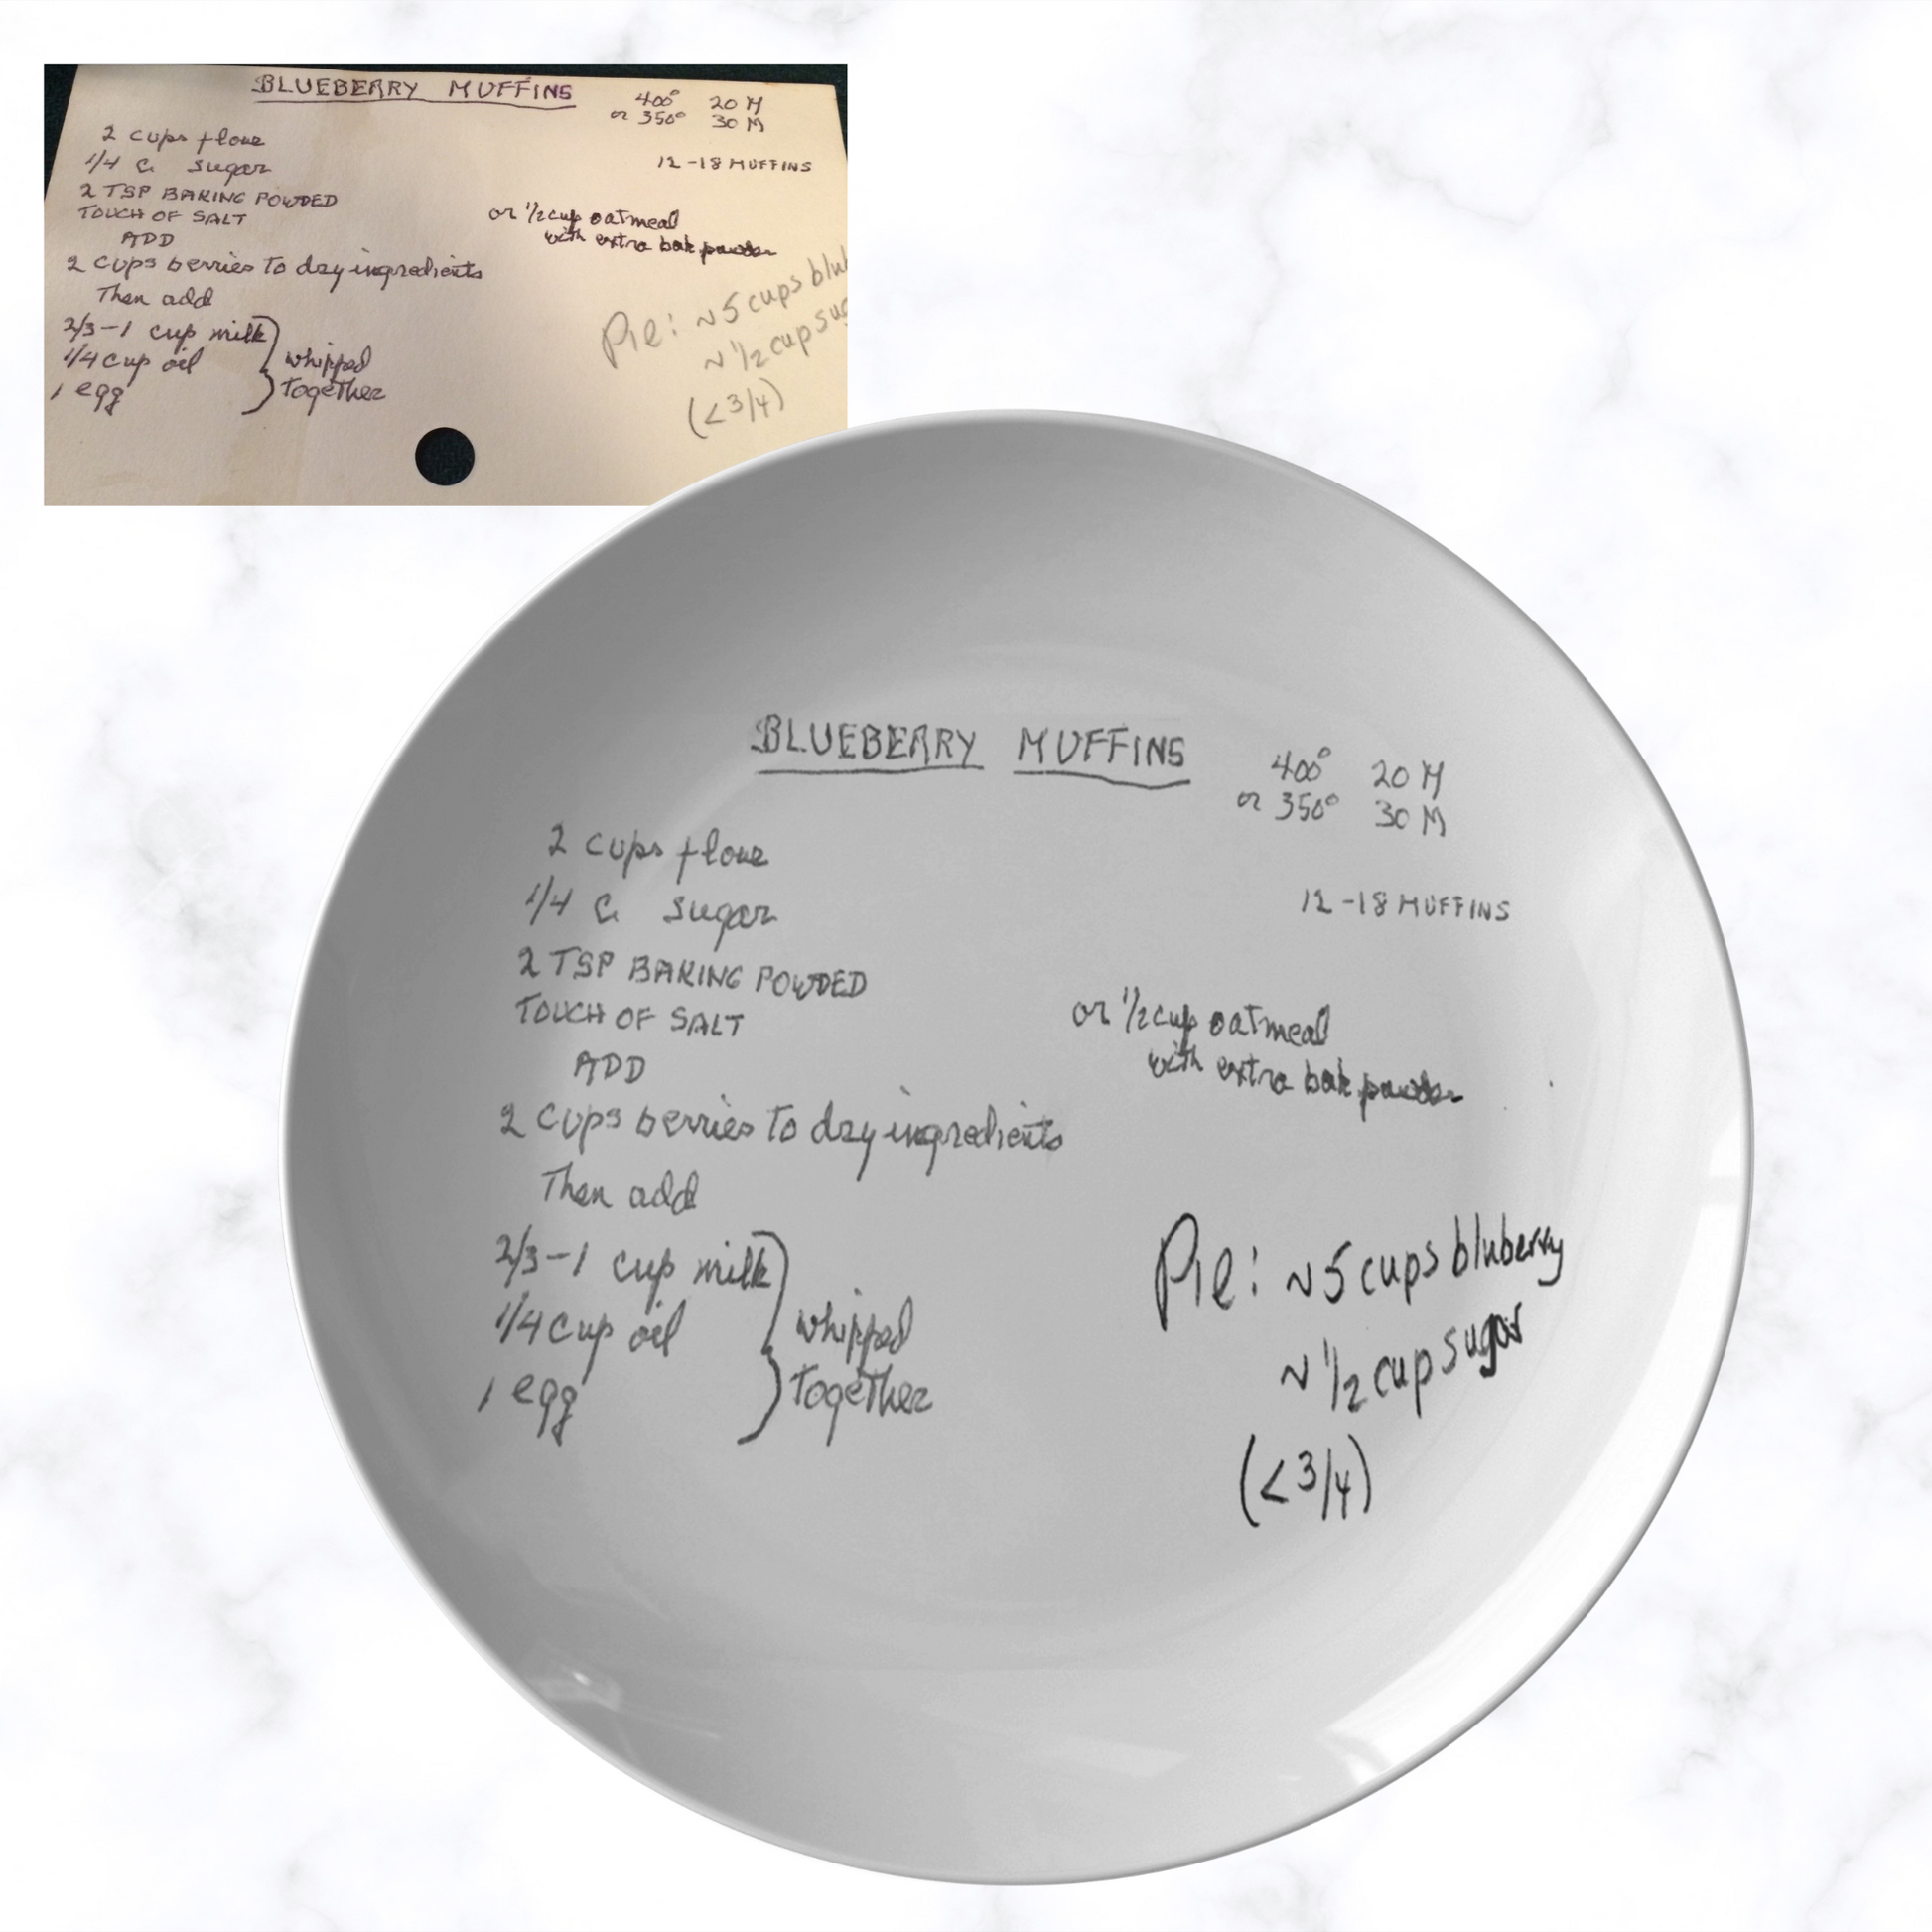 BLUEBERRY MUFFINS
400° 20 M
or 350° 30 M
2 cups flour
1/4 c. sugar
12-18 MUFFINS
2 TSP BAKING POWDED
TOUCH OF SALT
or 1/2 cup oatmeal
with extra bak powder
ADD
2 cups berries to dry ingredients
Then add
2/3-1 cup milk
1/4 cup oil
1 egg
whipped
together
Pie: ~5 cups blub
~ 1/2 cup sug
(<3/4)
BLUEBERRY MUFFINS
400° 20 M
or 350° 30 M
2 cups flour
1/4 c. sugar
12-18 MUFFINS
2 TSP BAKING POWDED
TOUCH OF SALT
or 1/2 cup oatmeal
with extra bak powder
ADD
2 cups berries to dry ingredients
Then add
2/3-1 cup milk
1/4 cup oil
1 egg
whipped
together
Pie: ~5 cups bluberry
~ 1/2 cup sugar
(<3/4)